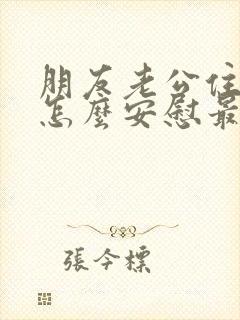 朋友老公住
怎麼安慰最
張今標